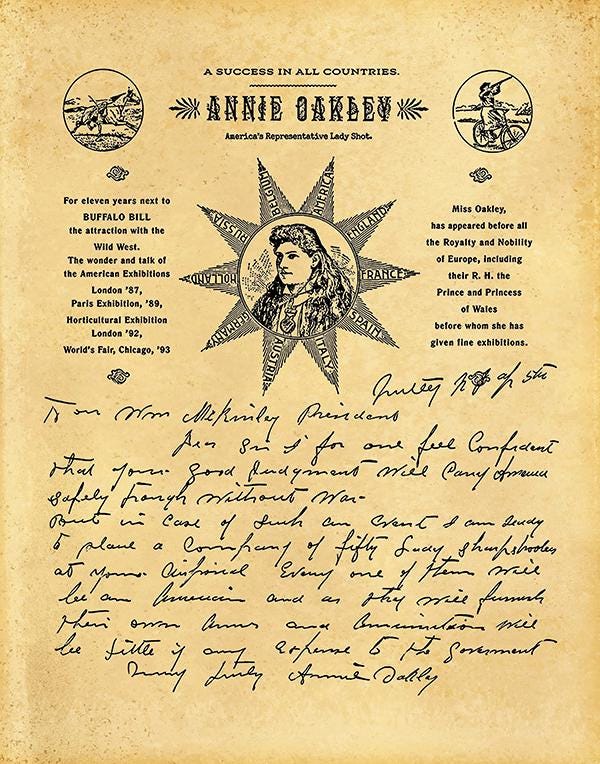 A SUCCESS IN ALL COUNTRIES.
ANNIE OAKLEY
America's Representative Lady Shot.
For eleven years next to
BUFFALO BILL
the attraction with the
Wild West.
The wonder and talk of
the American Exhibitions
London '87,
Paris Exhibition, '89,
Horticultural Exhibition
London '92,
World's Fair, Chicago, '93
AMERICA
ENGLAND
FRANCE
SPAIN
ITALY
AUSTRIA
GERMANY
HOLLAND
RUSSIA
BELGIUM
Miss Oakley,
has appeared before all
the Royalty and Nobility
of Europe, including
their R. H. the
Prince and Princess
of Wales
before whom she has
given fine exhibitions.
Nutley N J Ap 5th
To Hon Wm McKinley President
Dear Sir I for one feel Confident
that your good judgment will carry America
safely through without War-
But in case of such an event I am ready
to place a Company of fifty Lady sharpshooters
at your disposal Every one of them will
be an American and as they will furnish
their own Arms and Ammunition will
be little if any expense to the government
Very truly Annie Oakley